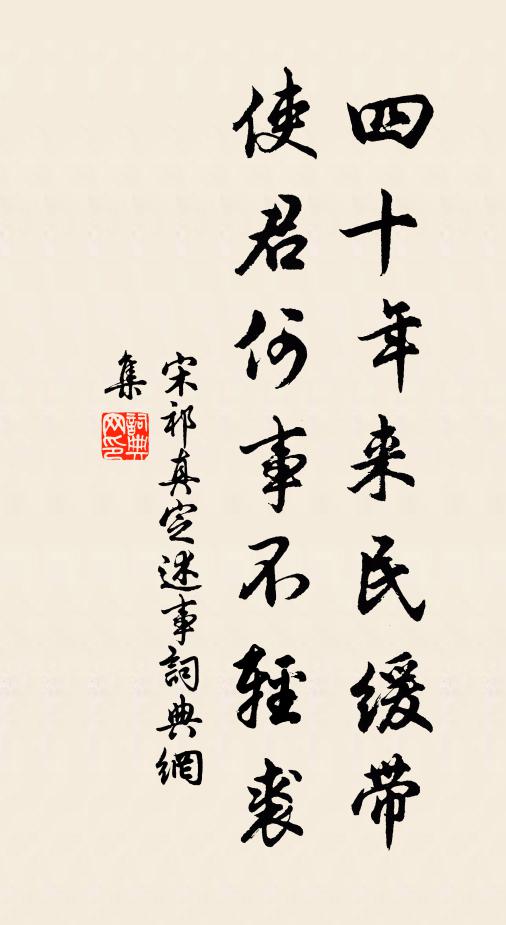 四十年来民缓带
使君何事不輕裘
宋祁真定述事詞典網
集
詞典网印